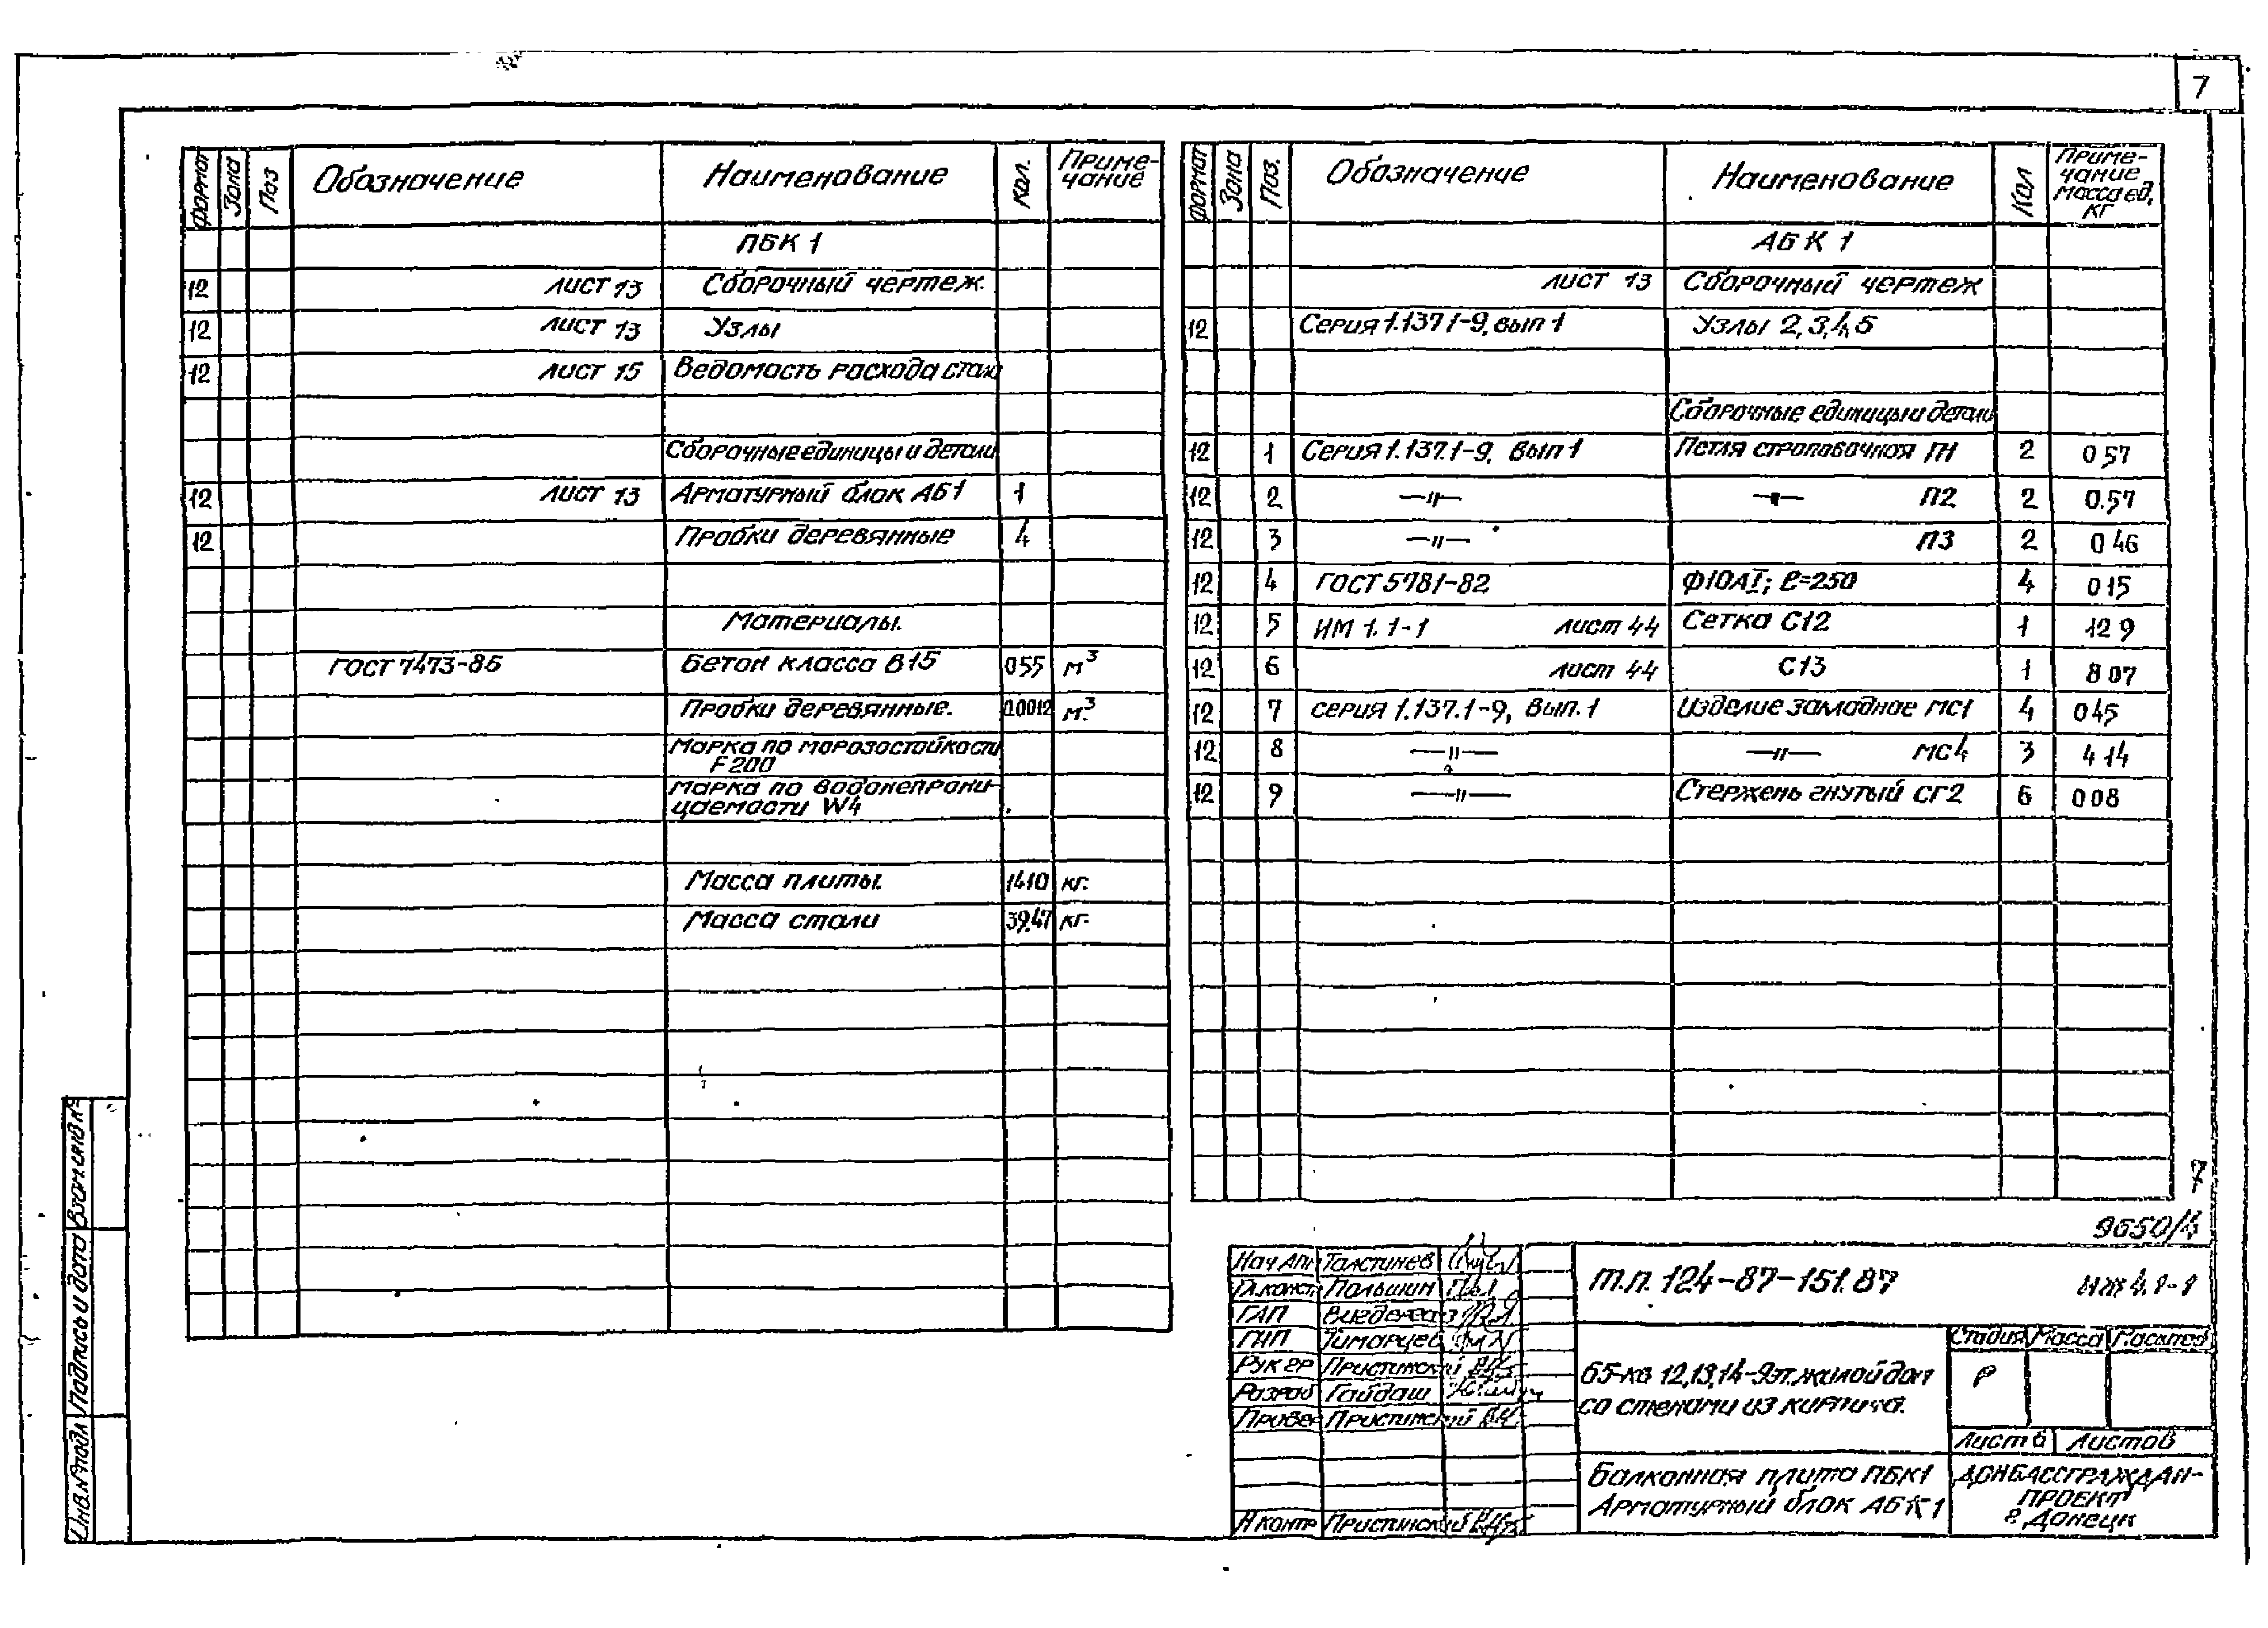 7
формат Зона Поз Обозначение Наименование Кол. Приме-
чание
ПБК 1
12 лист 13 Сборочный чертеж.
12 лист 13 Узлы
12 лист 15 Ведомость расхода стали
Сборочные единицы и детали
12 лист 13 Арматурный блок АБ1 1
12 Пробки деревянные 4
Материалы.
ГОСТ 7473-85 Бетон класса В15 0,55 м³
Пробки деревянные. 0.0012 м.³
Марка по морозостойкости
F200
Марка по водонепрони-
цаемости W4
Масса плиты. 1410 кг.
Масса стали 39.47 кг.
формат Зона Поз. Обозначение Наименование Кол Приме-
чание
масса ед,
кг
АБК 1
лист 13 Сборочный чертеж
12 Серия 1.137 1-9, вып 1 Узлы 2,3,4,5
Сборочные единицы и детали
12 1 Серия 1.137.1-9, вып 1 Петля строповочная П1 2 0,57
12 2 —"— —"— П2 2 0.57
12 3 —"— П3 2 0 46
12 4 ГОСТ 5781-82 Ф10АI; ℓ=250 4 0 15
12 5 ИМ 1. 1-1 лист 44 Сетка С12 1 12 9
12 6 лист 44 С13 1 8 07
12 7 серия 1.137.1-9, вып. 1 Изделие закладное МС1 4 0 45
12 8 —"— —"— МС4 3 4 14
12 9 —"— Стержень гнутый СГ2 6 0 08
7
9650/4
Нач АПМ Толстинев
Гл.конст. Польшин
ГАП
ГИП Тимарцев
Рук гр Пристинский
Разраб Гайдаш
Провер Пристинский
Н контр Пристинский
т.п. 124-87-151.87 ИЖ 4.1-1
65-кв 12,13,14-9эт.жилой дом
со стенами из кирпича.
Стадия Масса Масштаб
Р
Лист 6 Листов
Балконная плита ПБК1
Арматурный блок АБК1
ДОНБАССГРАЖДАН-
ПРОЕКТ
г. Донецк
Взам.инв.№
Подпись и дата
Инв.№подл